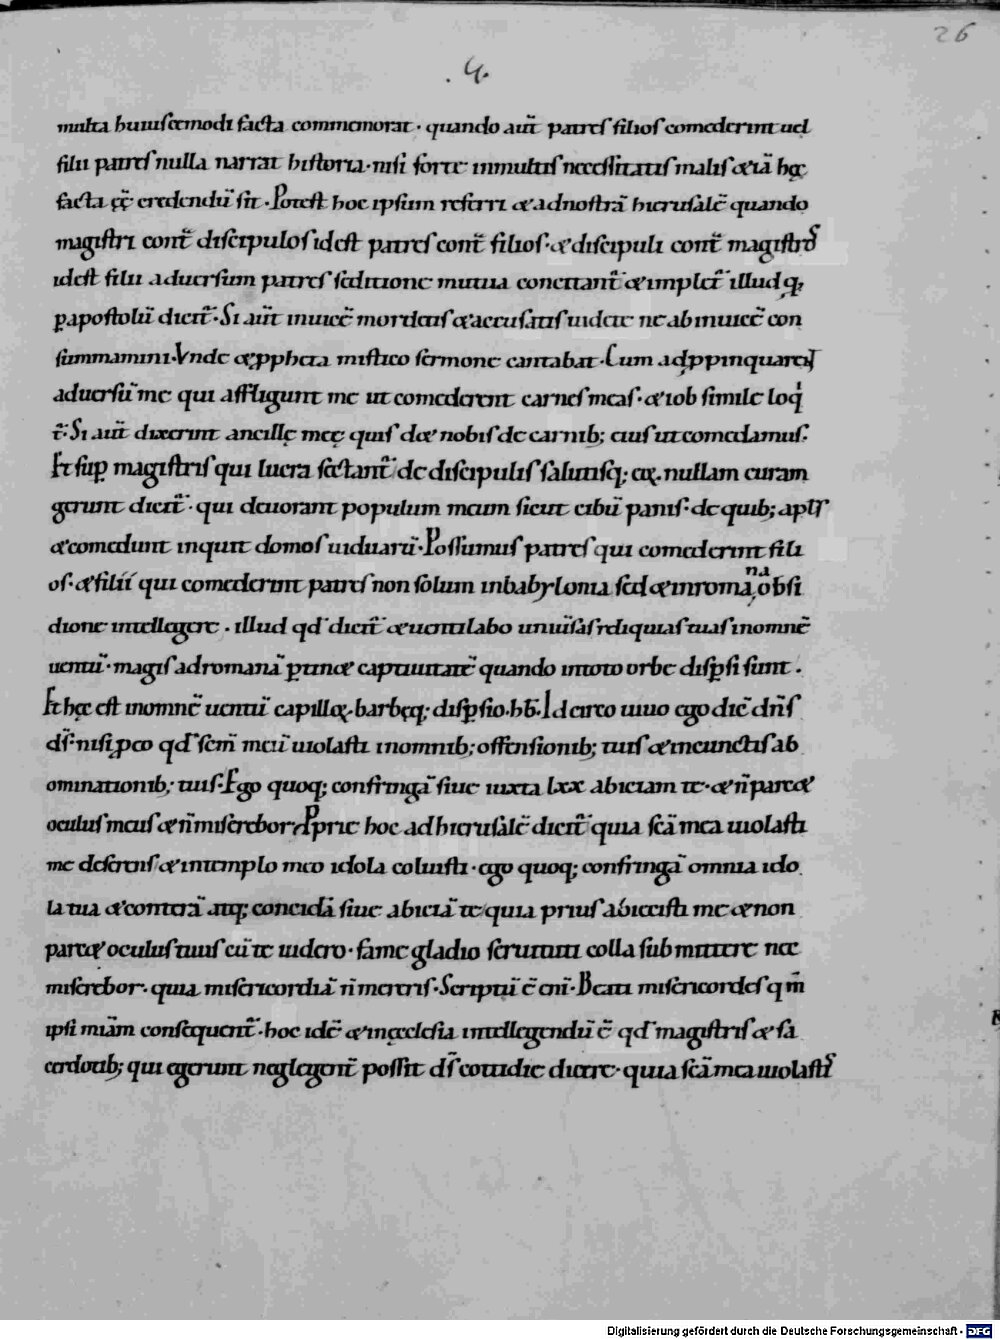 26
.4.
multa huiuscemodi facta commemorat · quando aut̄ patres filios comederint uel
filii patres nulla narrat historia · nisi forte inmultis necessitatis malis &iā hęc
facta eę̄ credendū sit · Potest hoc ipsum referri & adnostrā hierusalē quando
magistri cont̄ discipulos idest patres cont̄ filios · & discipuli cont̄ magistros
idest filii aduersum patres seditione mutua concertant̄ & implet̄ illud q,
ꝑapostolū dicit̄ · Si aut̄ inuicē mordetis & accusatis uidete ne ab inuicē con
summamini · Vnde & ꝓpheta mistico sermone cantabat · Cum adꝓpinquarent
aduersū me qui affligunt me ut comederent carnes meas · & iob simile loqi
t̄ · Si aut̄ dixerint ancillę meę quis d& nobis de carnib; eius ut comedamus ·
Et suꝑ magistris qui lucra sectant̄ de discipulis salutisq; eoꝝ nullam curam
gerunt dicit̄ · qui deuorant populum meum sicut cibū panis · de quib; aptꝉs
& comedunt inquit domos uiduarū · Possumus patres qui comederint fili
os · & filíí qui comederint patres non solum inbabylonia sed & inromana obsi
dione intellegere · illud qd̄ dicit̄ & uentilabo uniūsas reliquias tuas inomnē
uentū · magis adromanā ꝑtin& captiuitatē quando intoto orbe disꝑsi sunt ·
Et hęc est inomnē uentū capilloꝝ · barbęq; disꝑsio · hƀ · Idcirco uiuo ego dic̄ dn̄s
ds̄ · nisi ꝓeo qd̄ scm̄ meū uiolasti inomnib; offensionib; tuis & incunctis ab
ominationib; tuis · Ego quoq; confringā siue iuxta lxx abiciam te · & n̄ parc&
oculus meus & n̄ miserebor · Proprie hoc ad hierusalē dicit̄ quia scā mea uiolasti
me deserens & intemplo meo idola coluisti · ego quoq; confringā omnia ido
la tua & conterā atq; concidā siue abiciā te quia prius abiecisti me & non
parc& oculus tuus cū te uidero · fame gladio seruituti colla submittere nec
miserebor · quia misericordiā n̄ mereris · Scriptū ē enī · Beati misericordes qm̄
ipsi miām consequent̄ · hoc idē & inęcclesia intellegendū ē qd̄ magistris & sa
cerdotib; qui egerunt neglegent̄ possit ds̄ cottidie dicere · quia scā mea uiolasti
Digitalisierung gefördert durch die Deutsche Forschungsgemeinschaft - DFG